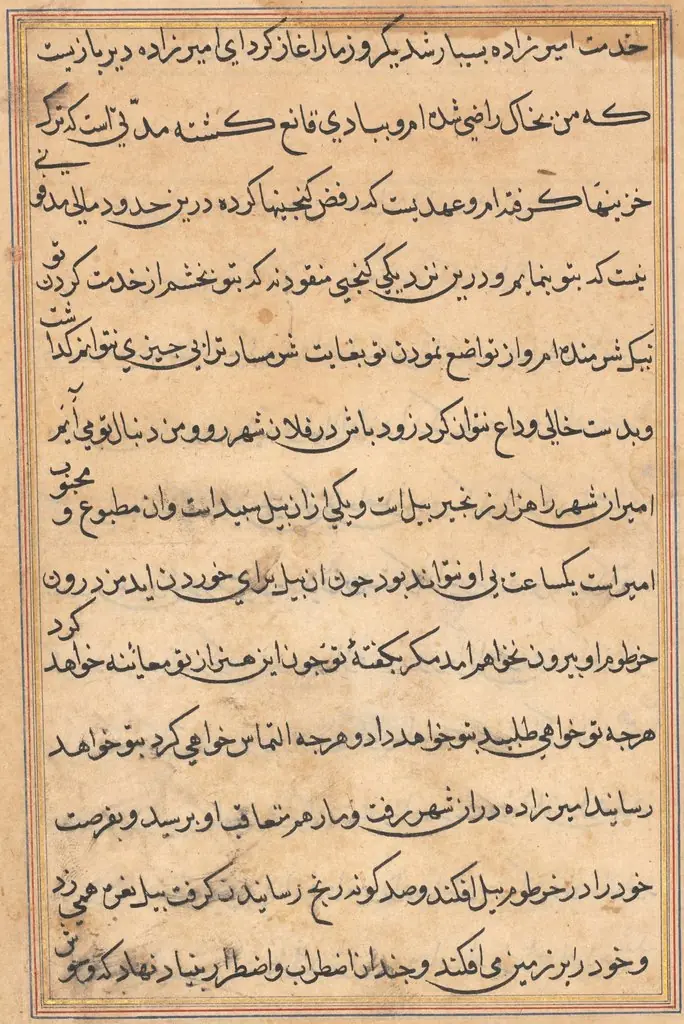 خدمت امیرزاده بسیار شد یکروز مار اغاز کرد ای امیرزاده دیر بازیست
که من بخاک راضی شده ام و ببادي قانع کشته مدّتی است که ترک
خزینها کرفته ام و عهدیست که رفض کنجینها کرده درین حدود مالی مدفونی
نیست که بتو بنمایم و درین نزدیکی کنجی منقود نه که بتو بخشم از خدمت کردن تو
نیک شرمنده ام و از تواضع نمودن تو بغایت شرمسار ترا بی جیزي نتوانم کداشت
و بدست خالی وداع نتوان کرد زود باش در فلان شهر رو و من دنبال تو می آیم
امیر ان شهر را هزار زنجیر بیل است و یکی از ان بیل سبید است وان مطبوع و محبوب
امیر است یکساعت بی او نتواند بود جون ان بیل براي خوردن اید من درون
خرطوم او بیرون نخواهم امد مکر بکفتهٔ تو جون این هنر از تو معائنه خواهد کرد
هرجه تو خواهی طلبید بتو خواهد داد و هرجه التماس خواهی کرد بتو خواهد
رسانید امیرزاده دران شهر رفت و مار هم متعاقب او برسید و بفرصت
خود را در خرطوم بیل افکند و صد کونه رنج رسانیدن کرفت بیل نعره همی زد
و خود را بر زمین می افکند و جندان اضطراب و اضطرار بنیاد نهاد که